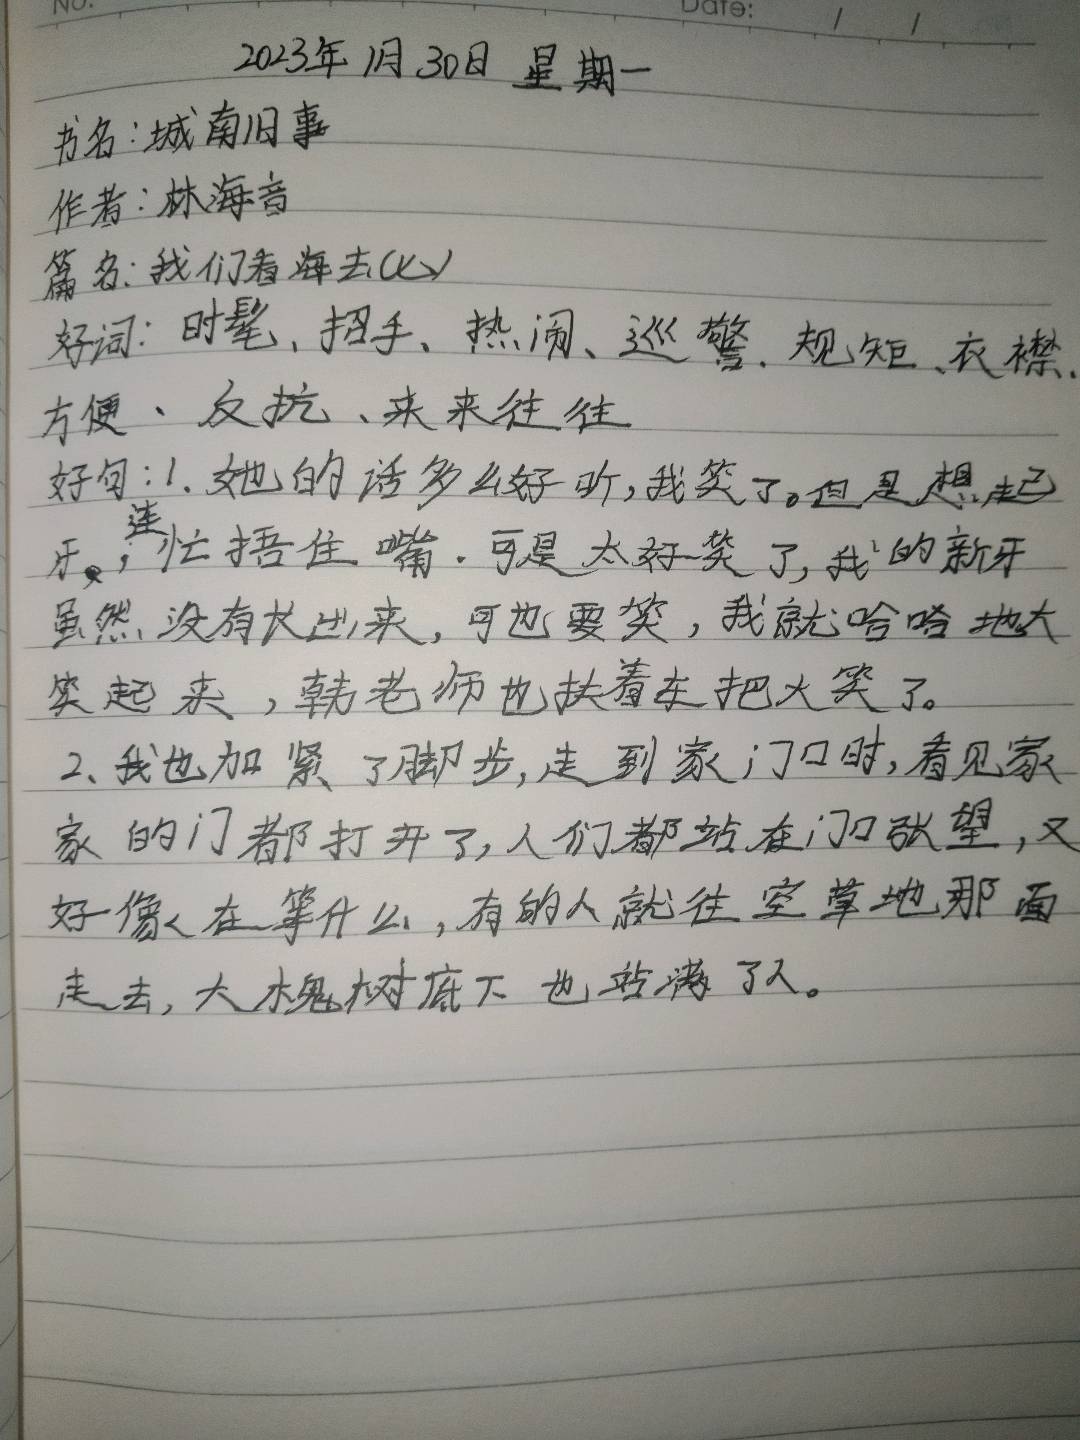 No.
Date: / /
2023年1月30日 星期一
书名：城南旧事
作者：林海音
篇名：我们看海去(七)
好词：时髦、招手、热闹、巡警、规矩、衣襟、
方便、反抗、来来往往
好句：1.她的话多么好听，我笑了。但是想起
牙，连忙捂住嘴.可是太好笑了，我的新牙
虽然没有长出来，可也要笑，我就哈哈地大
笑起来，韩老师也扶着车把大笑了。
2、我也加紧了脚步，走到家门口时，看见家
家的门都打开了，人们都站在门口张望，又
好像在等什么，有的人就往空草地那面
走去，大槐树底下也站满了人。